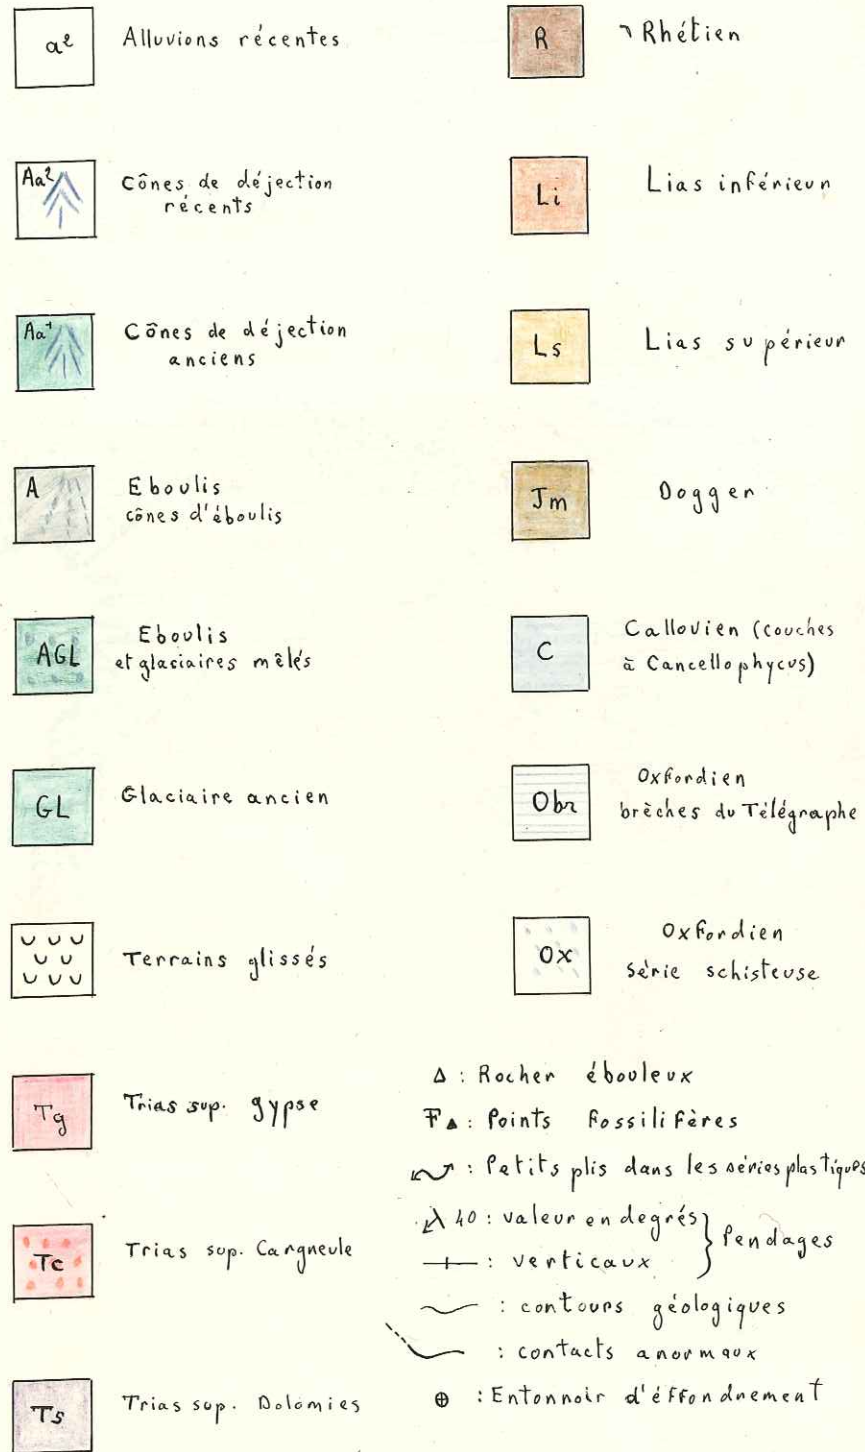 a²
Alluvions récentes
Aa²
Cônes de déjection
récents
Aa¹
Cônes de déjection
anciens
A
Eboulis
cônes d'éboulis
AGL
Eboulis
et glaciaires mêlés
GL
Glaciaire ancien
Terrains glissés
Tg
Trias sup. gypse
Tc
Trias sup. Cargneule
Ts
Trias sup. Dolomies
R
Rhétien
Li
Lias inférieur
Ls
Lias supérieur
Jm
Dogger
C
Callovien (couches
à Cancellophycus)
Obr
Oxfordien
brèches du Télégraphe
Ox
Oxfordien
série schisteuse
Δ : Rocher ébouleux
F▲ : Points fossilifères
: Petits plis dans les séries plastiques
40 : valeur en degrés
: verticaux
Pendages
: contours géologiques
: contacts anormaux
⊕ : Entonnoir d'éffondrement